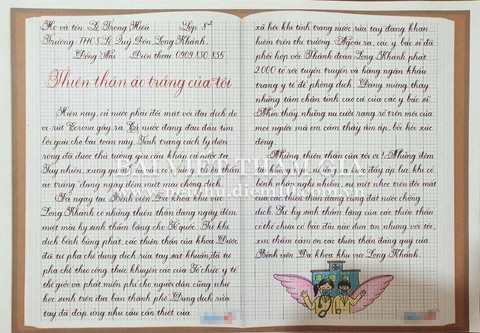 Họ và tên: Lê Trọng Hiếu Lớp 8
Trường THCS Lê Quý Đôn, Long Khánh,
Đồng Nai Điện thoại 0909 830 835
Thiên thần áo trắng của tôi
Hiện nay, cả nước phải đối mặt với đại dịch do
vi-rút Corona gây ra. Cả nước đang đau đầu tìm
lời giải cho bài toán này. Tình trạng cách ly diện
rộng đã được thử
Tuy nhiên, xung quanh thiên thần
áo trắng" đang ngày đêm miệt mài chống dịch.
Bệnh viện Đa khoa khu vực
Long Khánh có những thiên thần đang ngày đêm
miệt mài hy sinh thầm lặng cho Tổ quốc. Từ khi
dịch bệnh bùng phát, các thiên thần của khoa Dược
đã tự pha chế dung dịch rửa tay sát khuẩn, đã tự
pha chế theo công thức khuyến cáo của Tổ chức y tế
thế giới và phát miễn phí cho người dân cũng như
học sinh trên địa bàn thành phố. Dung dịch rửa
tay đã đáp ứng nhu cầu cần thiết của
xã hội khi tình trạng nước rửa tay đang khan
hiếm trên thị trường. Ngoài ra, các y bác sĩ đã
phối hợp với Thành đoàn Long Khánh phát
2000 tờ rơi tuyên truyền và hàng ngàn khẩu
trang y tế để phòng dịch. Đáng mừng thay
những tấm chân tình cao cả của các y bác sĩ.
Nhìn thấy những nụ cười rạng rỡ trên môi của
mọi người mà em cảm thấy ấm áp, bồi hồi xúc
động.
Những thiên thần của tôi ơi! Những đêm
áp lực khi có
bệnh nhân nghi nhiễm, sự mệt nhọc trên đôi mắt
của các thiên thần đang cùng đất nước chống
dịch. Sự hy sinh thầm lặng của các thiên thần
có thể chưa có báo đài nào đưa tin nhưng với tôi,
xin thầm cảm ơn các thiên thần đáng quý của
Bệnh viện Đa khoa khu vực Long Khánh.
ĐẠI VIỆT THAM GIA